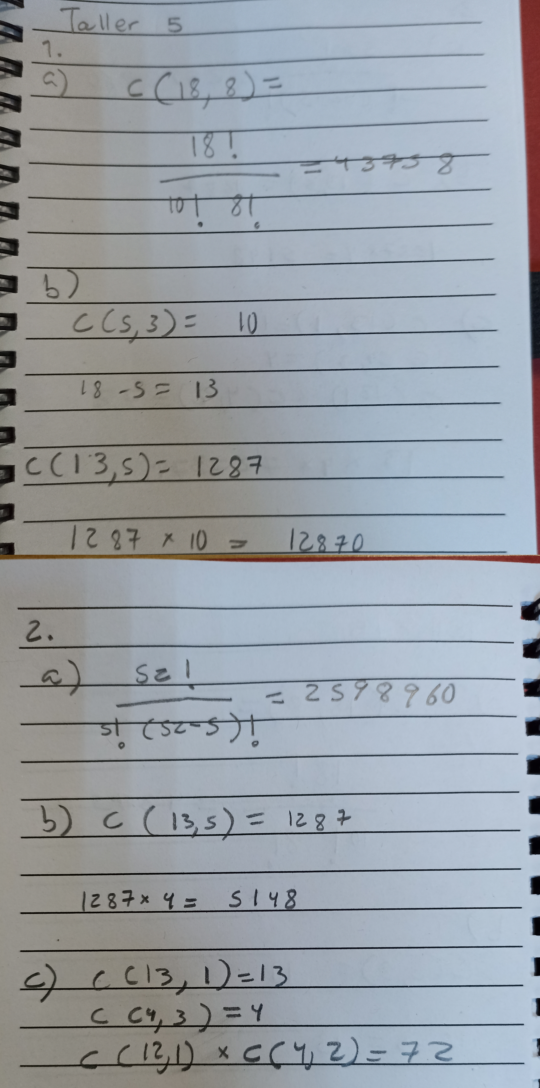 Taller 5
1.
a) C(18, 8) =
18!
10! 8!
= 43758
b)
C(5,3) = 10
18 - 5 = 13
C(13,5) = 1287
1287 × 10 = 12870
2.
a) 52!
5! (52-5)!
= 2598960
b) C (13,5) = 1287
1287 × 4 = 5148
c) C(13, 1) = 13
C(4,3) = 4
C(12,1) × C(4,2) = 72